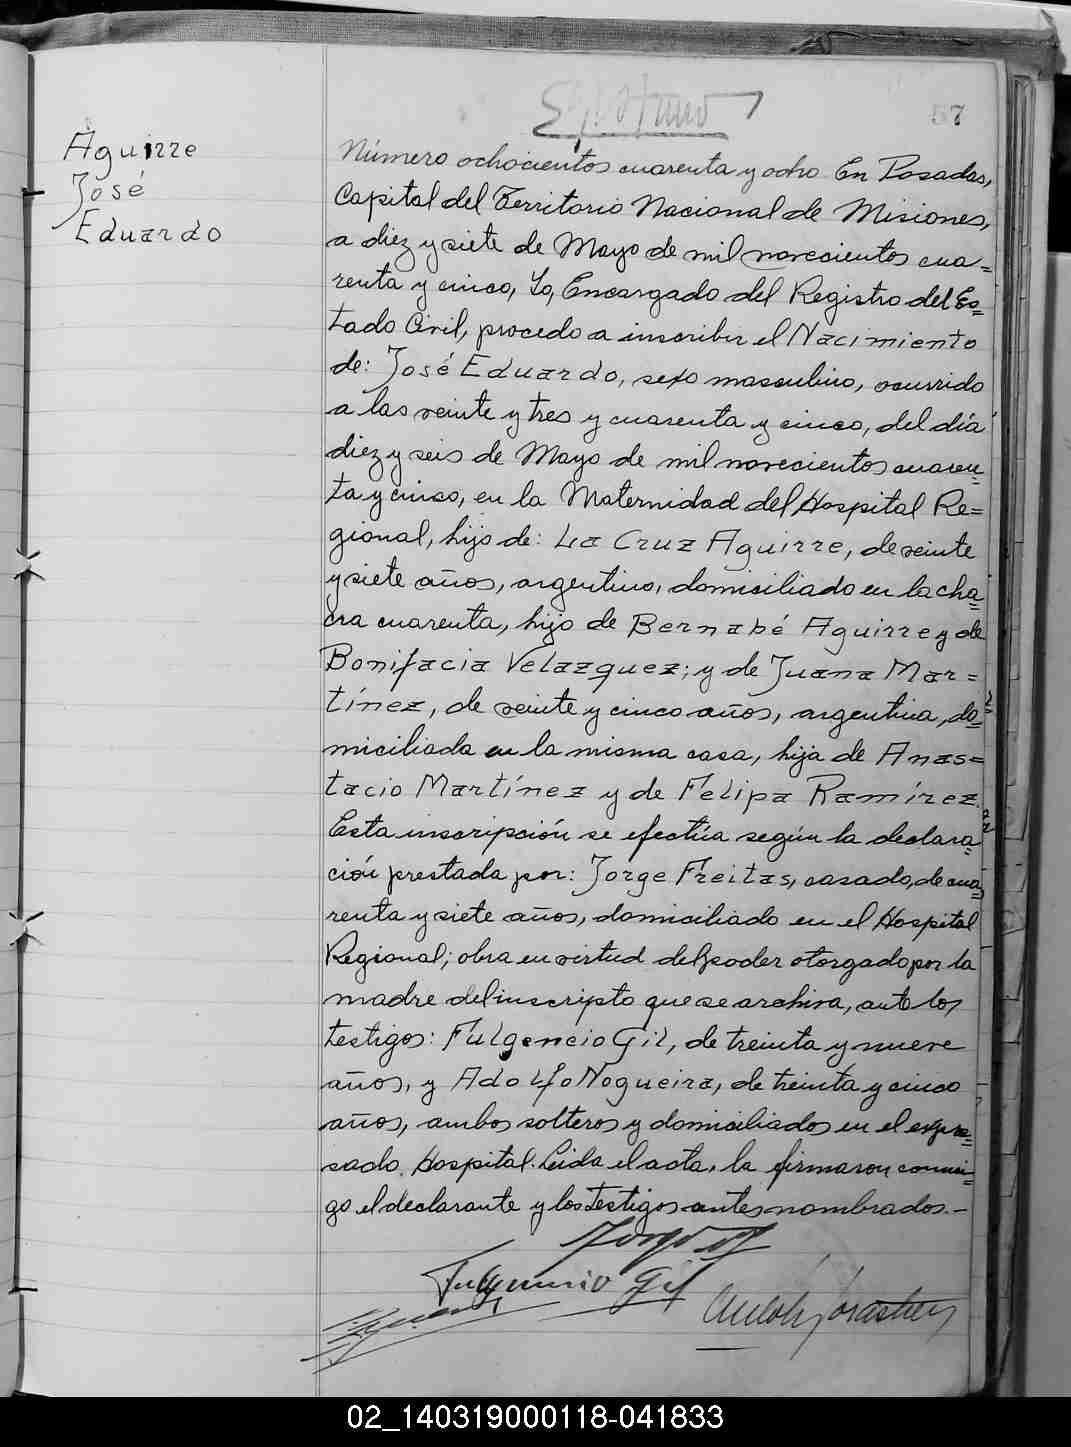 57
Aguirre
José
Eduardo
Número ochocientos cuarenta y ocho En Posadas,
Capital del Territorio Nacional de Misiones,
a diez y siete de Mayo de mil novecientos cua=
renta y cinco, Yo, Encargado del Registro del Es=
tado Civil, procedo a inscribir el Nacimiento
de: José Eduardo, sexo masculino, ocurrido
a las veinte y tres y cuarenta y cinco, del día
diez y seis de Mayo de mil novecientos cuaren=
ta y cinco, en la Maternidad del Hospital Re=
gional, hijo de: La Cruz Aguirre, de veinte
y siete años, argentino, domiciliado en la cha=
cra cuarenta, hijo de Bernabé Aguirre y de
Bonifacia Velazquez; y de Juana Mar=
tínez, de veinte y cinco años, argentina, do=
miciliada en la misma casa, hija de Anas=
tacio Martínez y de Felipa Ramírez.
Esta inscripción se efectúa según la declara=
ción prestada por: Jorge Freitas, casado, de cua=
renta y siete años, domiciliado en el Hospital
Regional; obra en virtud del poder otorgado por la
madre del inscripto que se archiva, ante los
testigos: Fulgencio Gil, de treinta y nueve
años, y Adolfo Nogueira, de treinta y cinco
años, ambos solteros y domiciliados en el expre=
sado Hospital. Leida el acta, la firmaron conmi=
go el declarante y los testigos antes nombrados.-
Fulgencio Gil
02_140319000118-041833